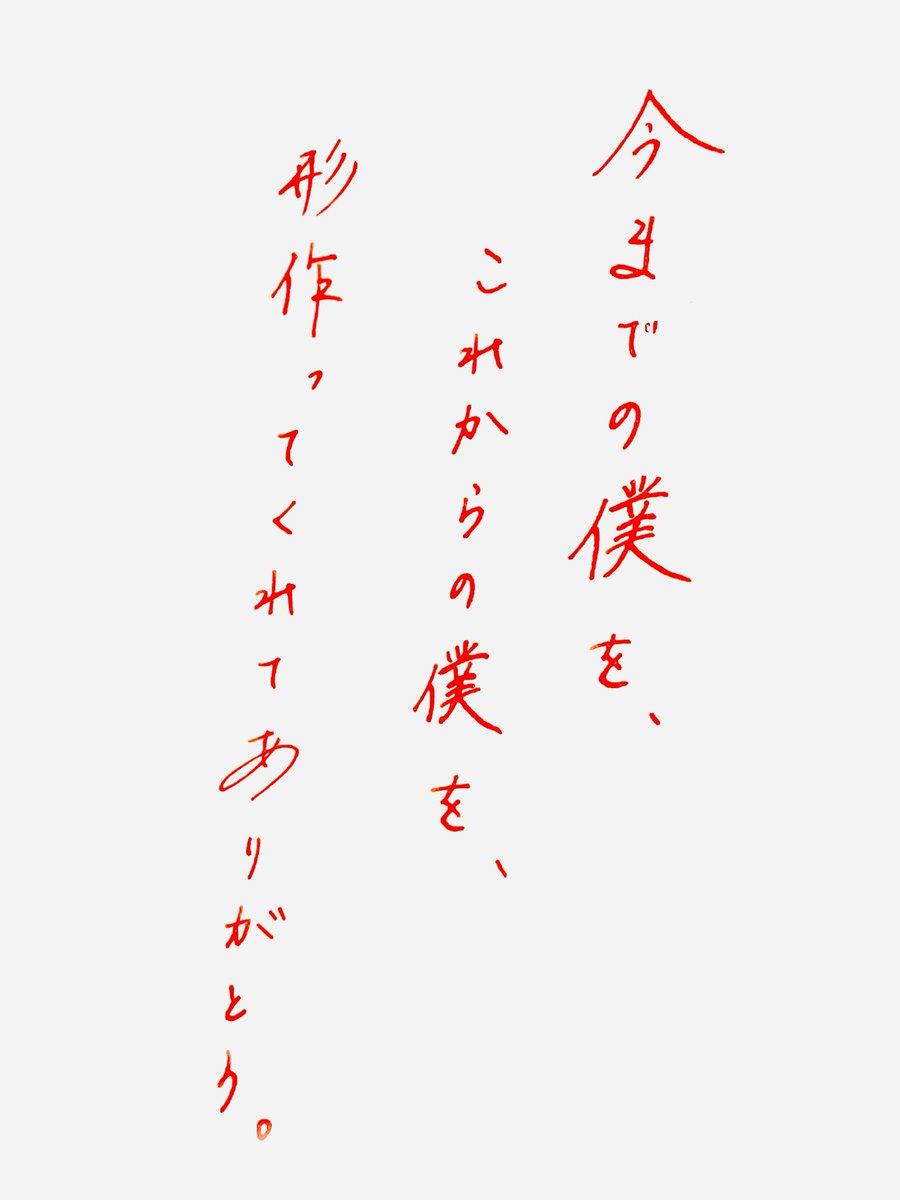 今までの僕を、
これからの僕を、
形作ってくれてありがとう。